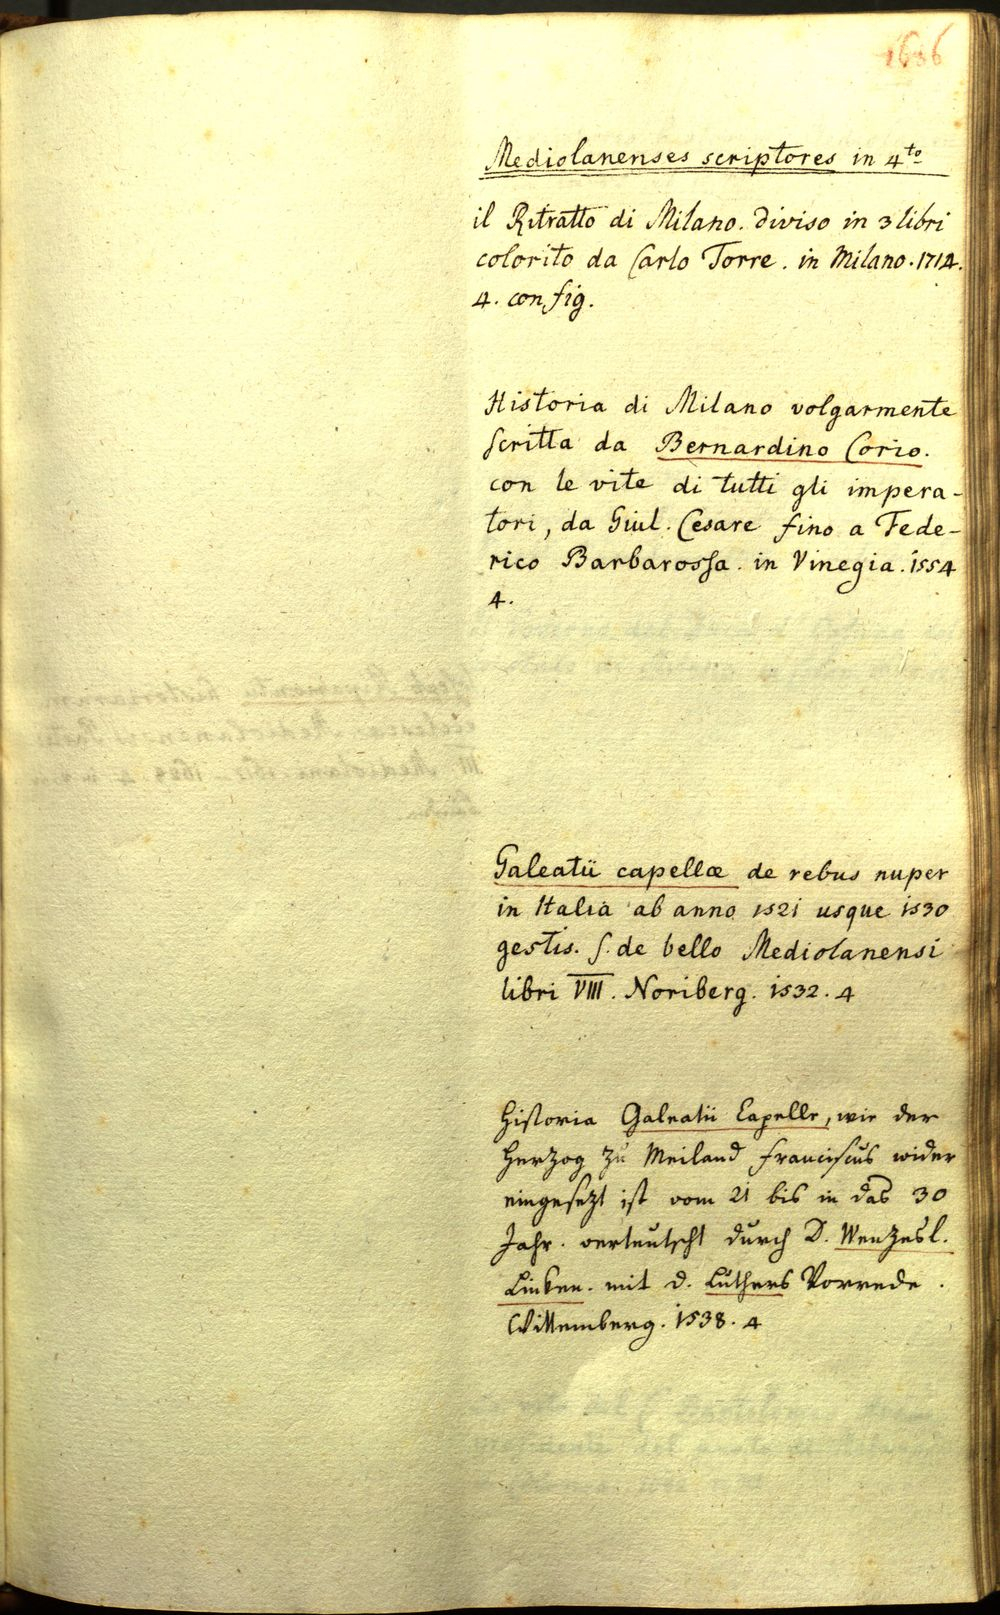 1686
Mediolanenses scriptores in 4to
il Ritratto di Milano. diviso in 3 libri
colorito da Carlo Torre. in Milano. 1714.
4. con fig.
Historia di Milano volgarmente
scritta da Bernardino Corio.
con le vite di tutti gli impera-
tori, da Giul. Cesare fino a Fede-
rico Barbarossa. in Vinegia. 1554
4.
Galeatii capellæ de rebus nuper
in Italia ab anno 1521 usque 1530
gestis. s. de bello Mediolanensi
libri VIII. Noriberg. 1532. 4
Historia Galeatii Capelle, wie der
Herzog zu Meiland Franciscus wider
eingesezt ist vom 21 bis in das 30
Jahr. verteutscht durch D. Wenzesl.
Linken. mit D. Luthers Vorrede.
Wittemberg. 1538. 4